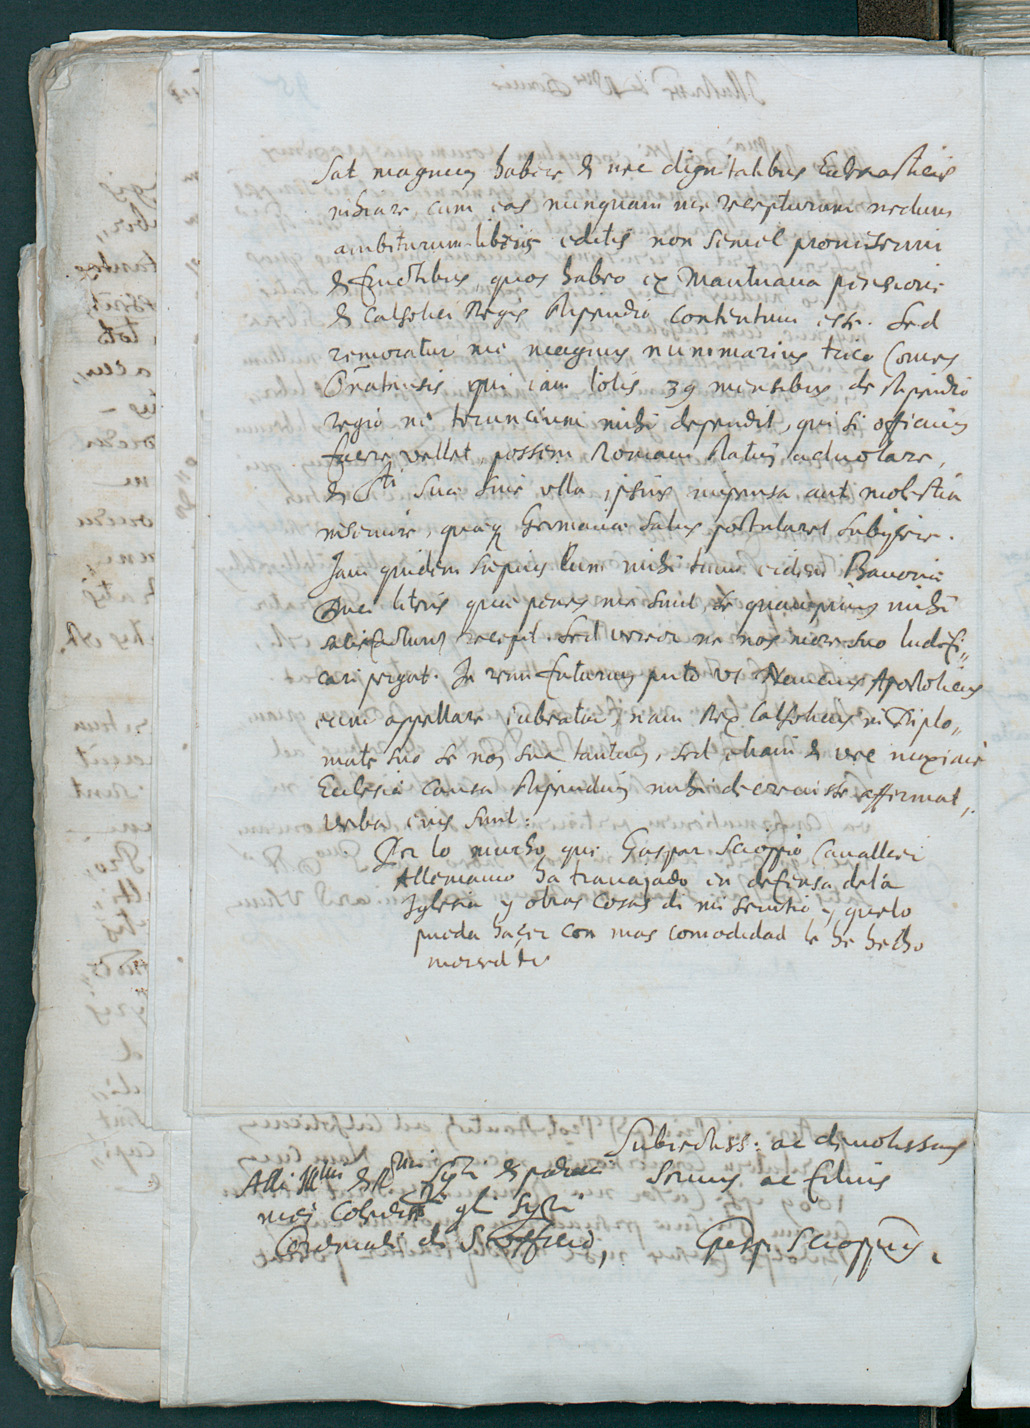 Sat magnum habere & nec dignitatibus Ecclesiasticis
inhiare, cum eas nunquam me recepturum nedum
ambiturum libris editis non semel promiserim
& fructibus, quos habeo ex Mantuana pensione
& Catholici Regis stipendio contentum esse. Sed
remoratur me magnus nummarius Comes
Oñatensis, qui iam totis 39 mensibus de stipendio
regio ne teruncium mihi dependit, qui si officium
facere vellet, possem Romam statim advolare,
& Sti Suae sine ulla ipsius impensa aut molestia
inservire, quaeq Germaniae salus postularet subijcere.
Iam quidem saepius tum mihi tum eidem Bavariae
Duci literis quae penes me sunt, se quamprimum mihi
satisfacturum recepit. Sed vereor ne nos more suo ludifi„
cari pergat. In rem futurum puto ut Nuncius Apostolicus
eum appellare iubeatur, nam Rex Catholicus in Diplo„
mate suo se non sua tantum, sed etiam & vel maxime
Ecclesiae causa stipendium mihi decrevisse affirmat,
verba eius sunt:
Por lo mucho que Gaspar Scioppio Cavallero
Allemanno ha travajado en defensa de la
Iglesia y otras cosas di mi servitio, y quelo
pueda haçer con mas comodidad le he hecho
merced &c
Subiectiss: ac devotissimus
Servus ac filius
Gasp. Scioppius.
Alli Illmi & Rmi Sigri & padroni
miei Colendmi gli Sigri
Cardinali di S. Officio,